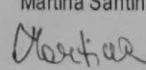 Martina Santin
Martina